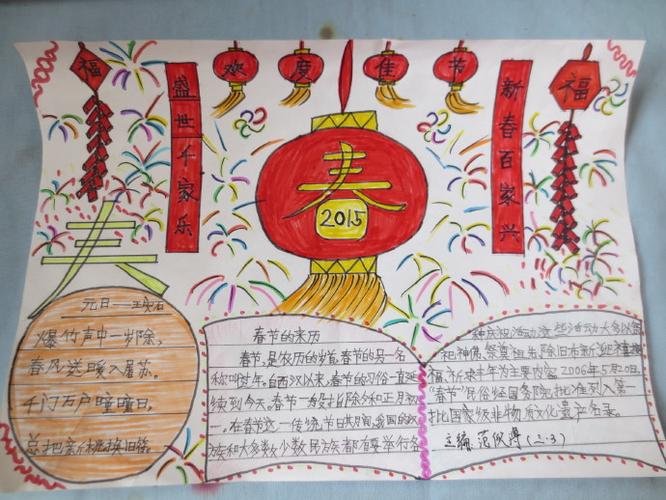 欢度佳节
福
盛世千家乐
春
2015
新春百家兴
福
春
元日——王安石
爆竹声中一岁除,
春风送暖入屠苏。
千门万户曈曈日,
总把新桃换旧符。
春节的来历
春节,是农历的岁首,春节的另一名
称叫过年。自西汉以来,春节的习俗一直延
续到今天。春节一般指除夕和正月初
一,在春节这一传统节日期间,我国的汉
族和大多数少数民族都要举行各
种庆祝活动,这些活动大多以祭
祀神佛、祭奠祖先、除旧布新、迎禧接
福、祈求丰年为主要内容。2006年5月20日,
“春节”民俗经国务院批准列入第一
批国家级非物质文化遗产名录。
主编:范
(二·3)